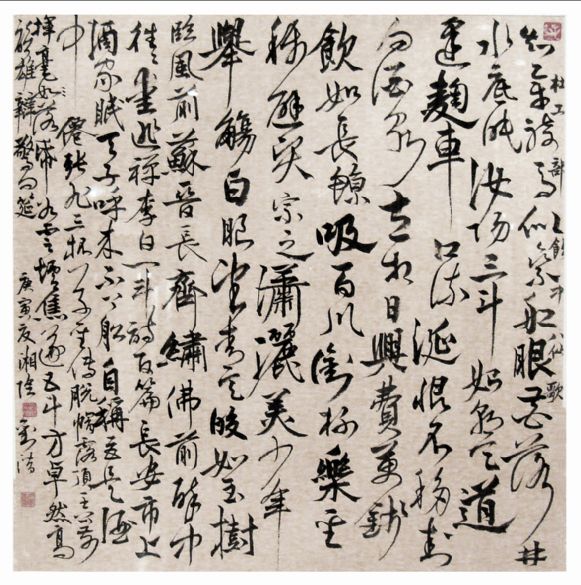 知章騎馬似乘船眼花落井
杜工部飲中八仙歌
水底眠汝陽三斗始朝天道
逢麴車口流涎恨不移封
向酒泉左相日興費萬錢
飲如長鯨吸百川銜杯樂聖
稱避賢宗之瀟灑美少年
舉觴白眼望青天皎如玉樹
臨風前蘇晉長齊繡佛前醉中
往往愛逃禪李白一斗詩百篇長安市上
酒家眠天子呼來不上船自稱臣是酒
中僊張旭三杯草聖傳脫帽露頂王公前
揮毫落紙如雲煙焦遂五斗方卓然高
談雄辯驚四筵 庚寅夏湘陰 劉